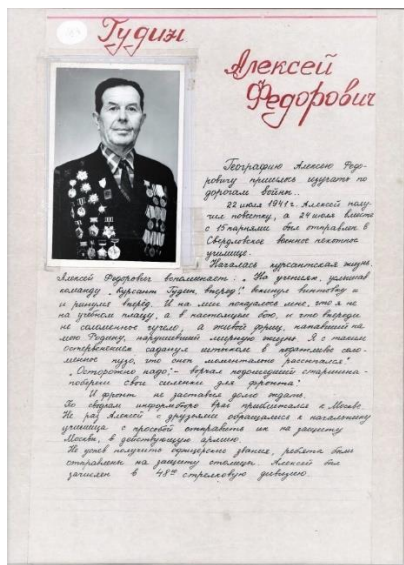 Гудин
Алексей
Федорович
Географию Алексею Федо-
ровичу пришлось изучать по
дорогам войны..
22 июня 1941 г. Алексей полу
чил повестку, а 24 июля вместе
с 15 парнями был отправлен в
Свердловское военное пехотное
училище.
Началась курсантская жизнь.
Алексей Федорович вспоминает: „На учениях, услышав
команду „Курсант Гудин, вперед!" вскинул винтовку и
и ринулся вперёд. И на миг показалось мне, что я не
на учебном плацу, а в настоящем бою, и что впереди
не соломенное чучело, а живой фриц, напавший на
мою Родину, нарушивший мирную жизнь. Я с таким
остервенением саданул штыком в податливое соло-
менное пузо, что оно моментально рассыпалось!"
„Осторожно надо;- ворчал подошедший старшина-
побереги свои силенки для фронта!"
И фронт не заставил долго ждать.
По сводкам информбюро враг приближался к Москве.
Не раз Алексей с друзьями обращался к начальнику
училища с просьбой отправить их на защиту
Москвы, в действующую армию.
Не успев получить офицерские звания, ребята были
отправлены на защиту столицы. Алексей был
зачислен в 48ую стрелковую дивизию.